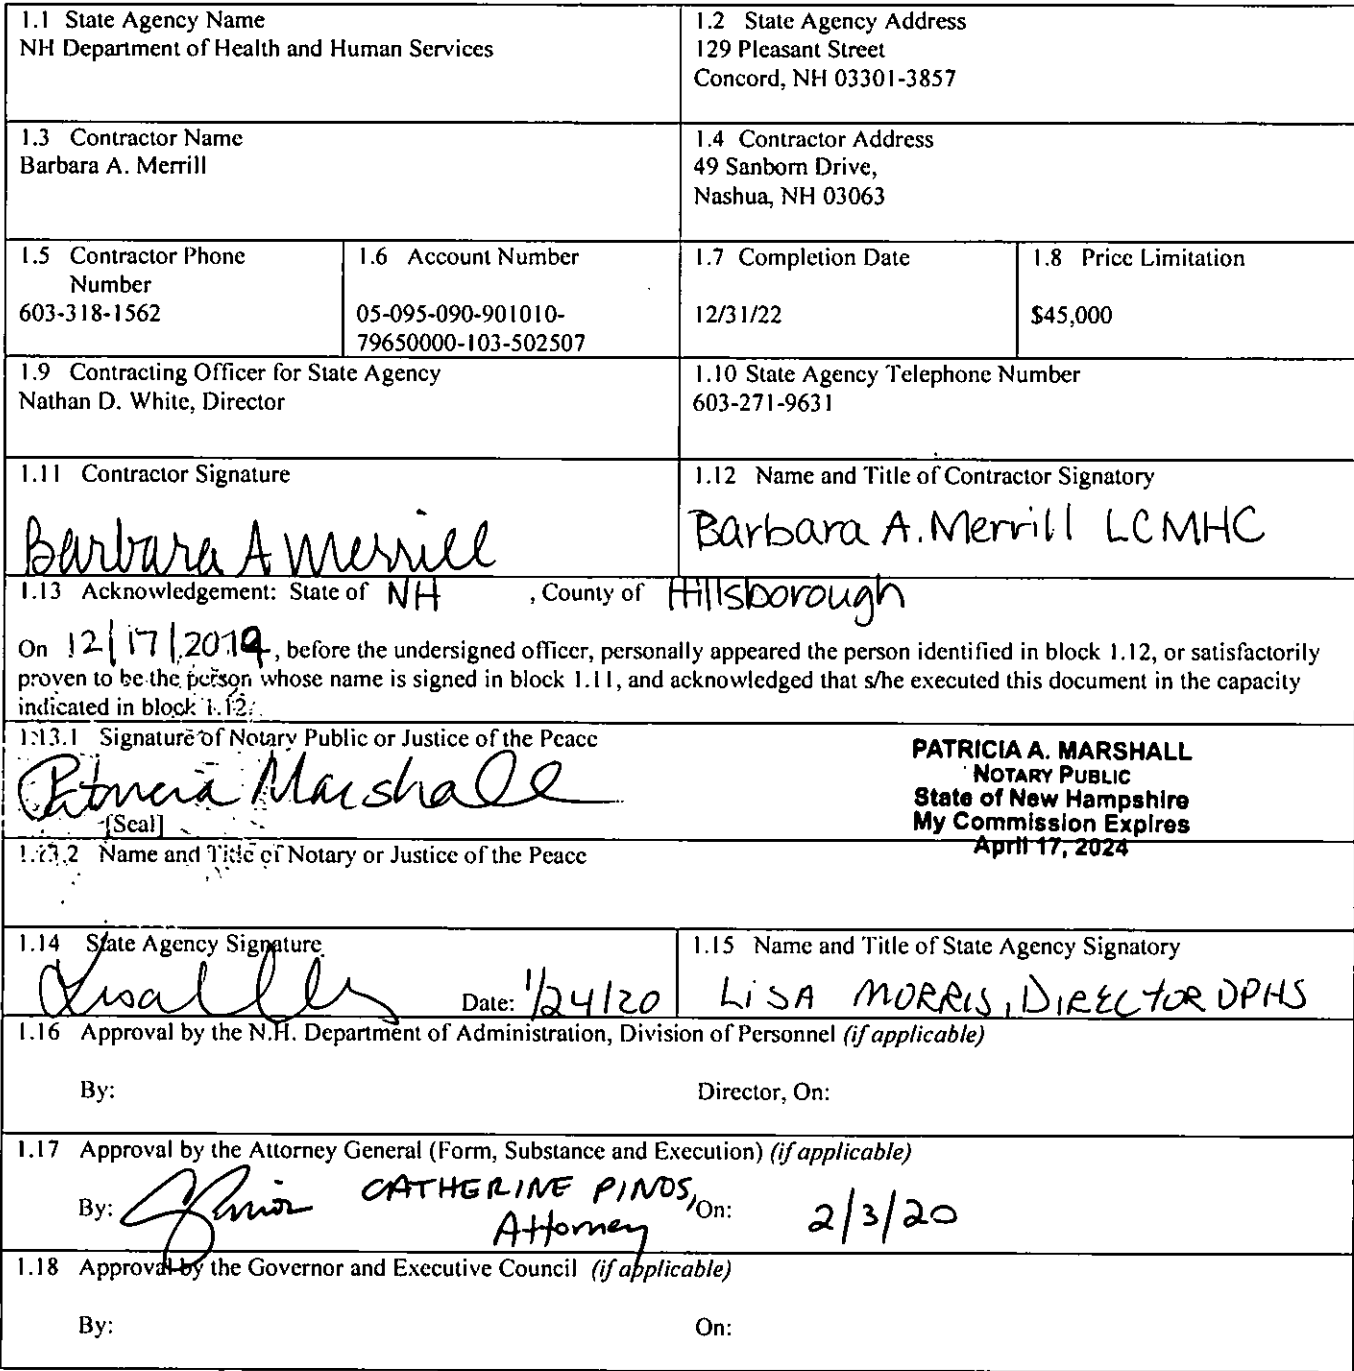 1.1 State Agency Name
NH Department of Health and Human Services
1.2 State Agency Address
129 Pleasant Street
Concord, NH 03301-3857
1.3 Contractor Name
Barbara A. Merrill
1.4 Contractor Address
49 Sanborn Drive,
Nashua, NH 03063
1.5 Contractor Phone
Number
603-318-1562
1.6 Account Number
05-095-090-901010-
79650000-103-502507
1.7 Completion Date
12/31/22
1.8 Price Limitation
$45,000
1.9 Contracting Officer for State Agency
Nathan D. White, Director
1.10 State Agency Telephone Number
603-271-9631
1.11 Contractor Signature
Barbara A Merrill
1.12 Name and Title of Contractor Signatory
Barbara A. Merrill LCMHC
1.13 Acknowledgement: State of NH , County of Hillsborough
On 12/17/2019, before the undersigned officer, personally appeared the person identified in block 1.12, or satisfactorily
proven to be the person whose name is signed in block 1.11, and acknowledged that s/he executed this document in the capacity
indicated in block 1.12.
1.13.1 Signature of Notary Public or Justice of the Peace
Patricia Marshall
[Seal]
PATRICIA A. MARSHALL
NOTARY PUBLIC
State of New Hampshire
My Commission Expires
April 17, 2024
1.13.2 Name and Title of Notary or Justice of the Peace
1.14 State Agency Signature
Date: 1/24/20
1.15 Name and Title of State Agency Signatory
LISA MORRIS, DIRECTOR DPHS
1.16 Approval by the N.H. Department of Administration, Division of Personnel (if applicable)
By: Director, On:
1.17 Approval by the Attorney General (Form, Substance and Execution) (if applicable)
By: CATHERINE PINOS, On: 2/3/20
Attorney
1.18 Approval by the Governor and Executive Council (if applicable)
By: On: